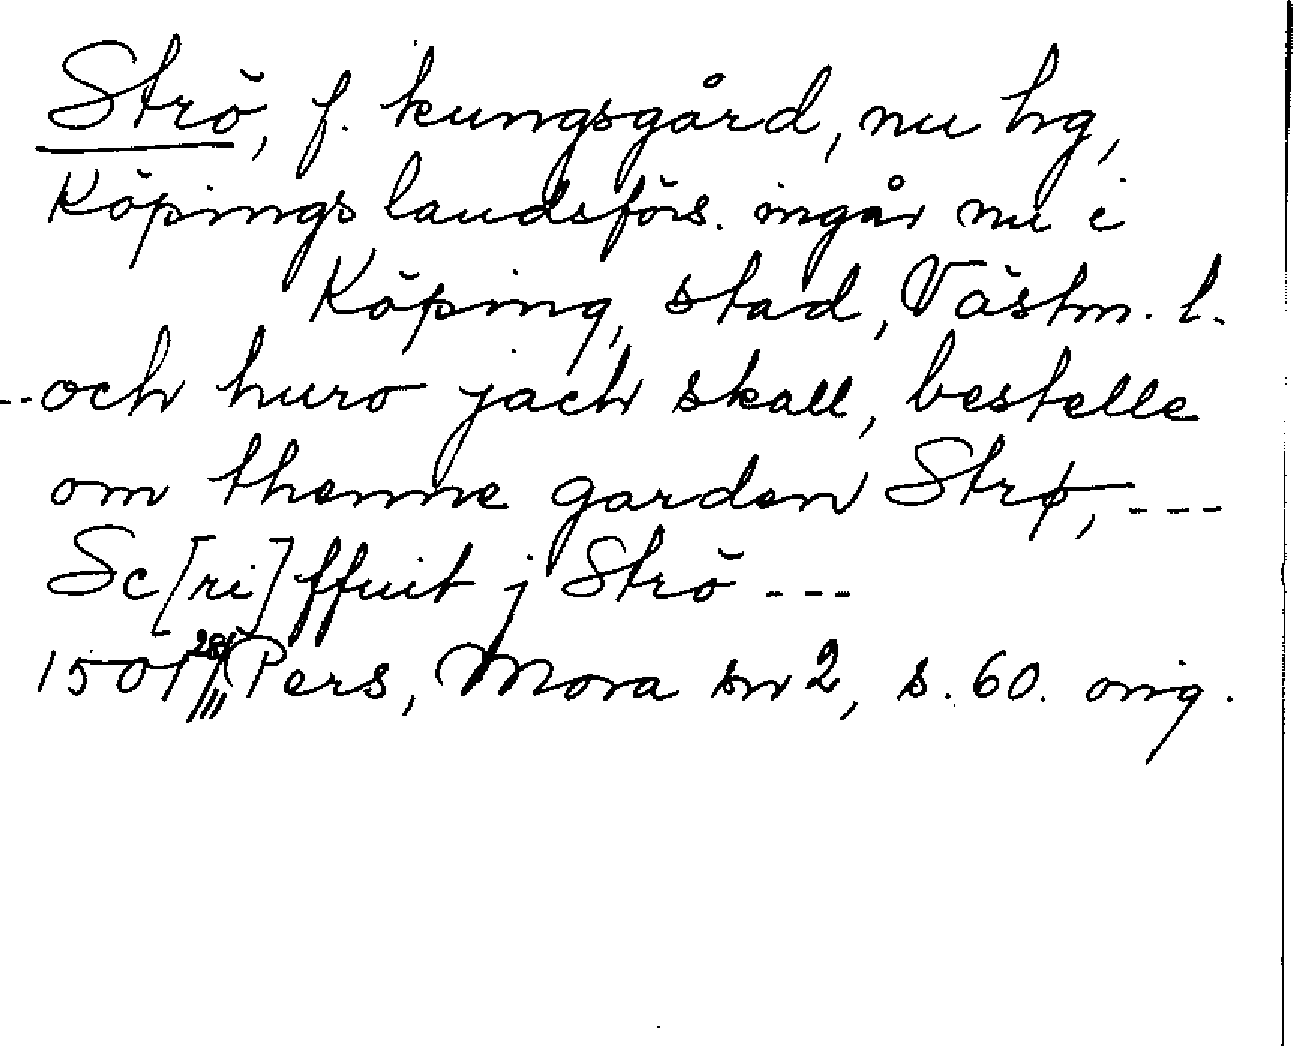 Strö, f. kungsgård, nu hg,
Köpings landsförs. ingår nu i
Köping, stad, Västm. l.
--och huro jach skall, bestelle
om thenne garden Strø, ---
Sc[ri]ffuit j Strö ---
1501 28/III Pers, Mora sn 2, s. 60. orig.